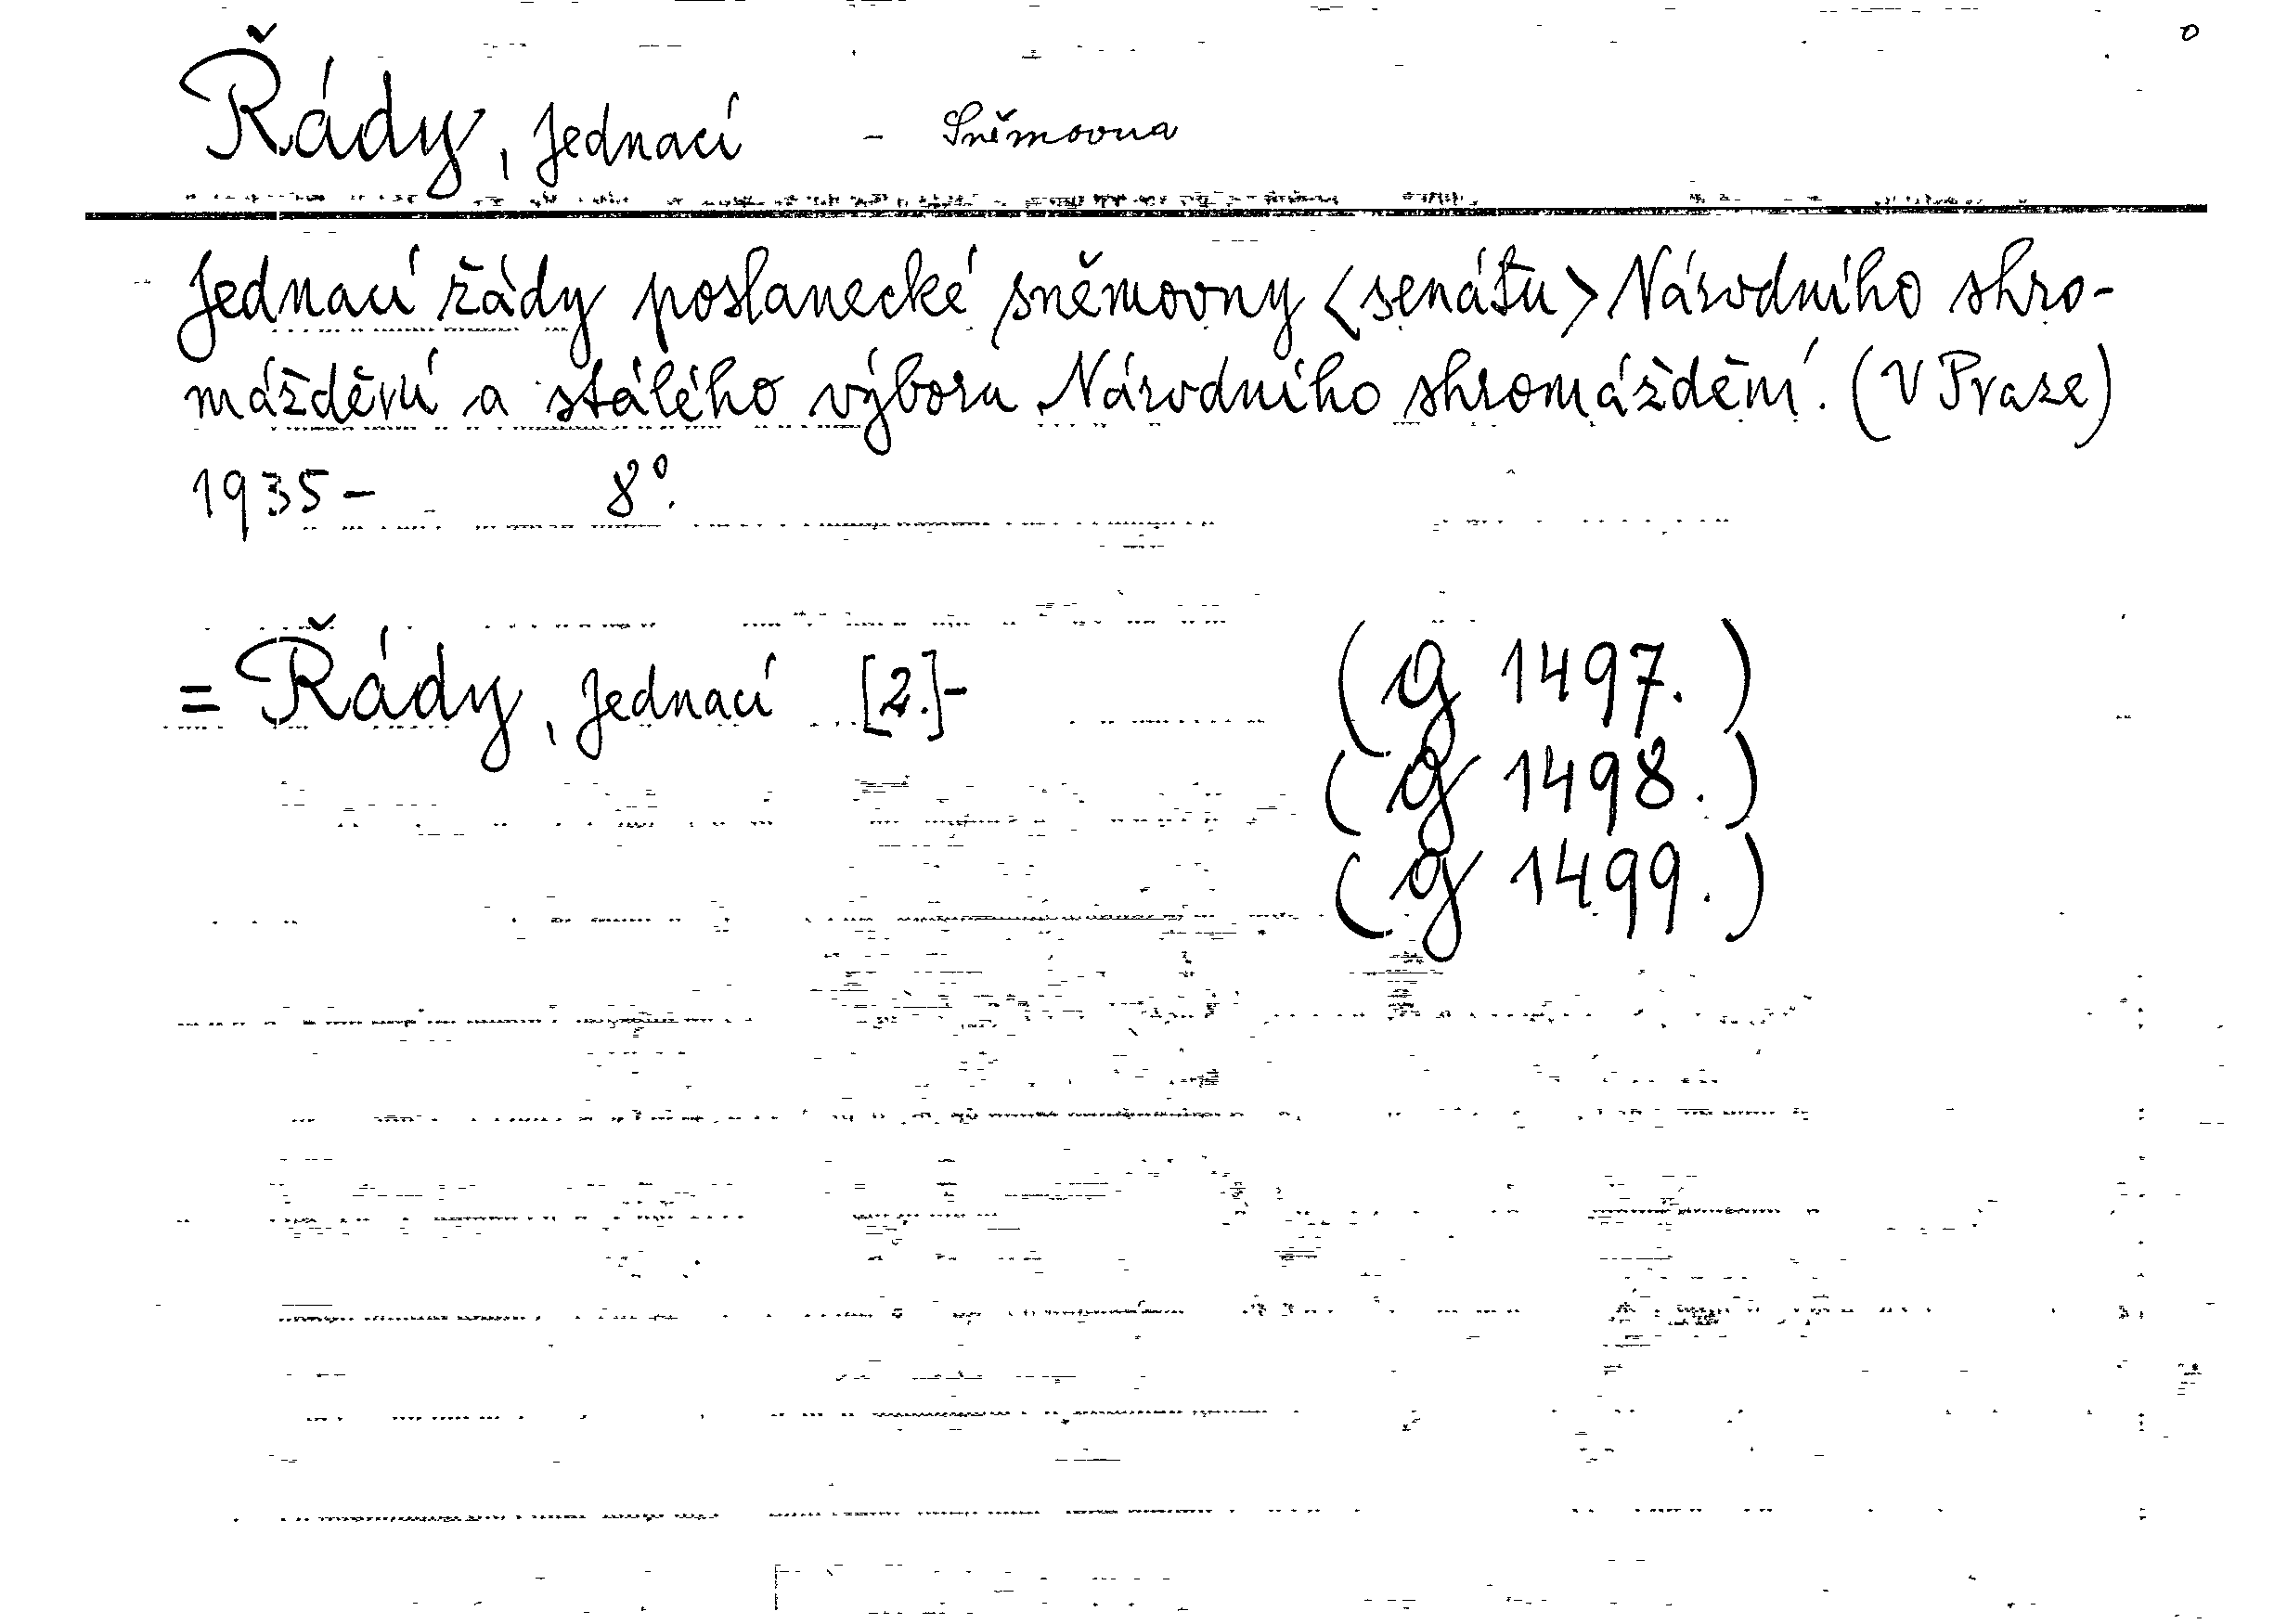 o
Řády, jednací - Sněmovna
Jednací řády poslanecké sněmovny <senátu> Národního shro-
máždění a stálého výboru Národního shromáždění. (V Praze)
1935- 8°.
= Řády, jednací [2.]- (g 1497.)
(g 1498.)
(g 1499.)